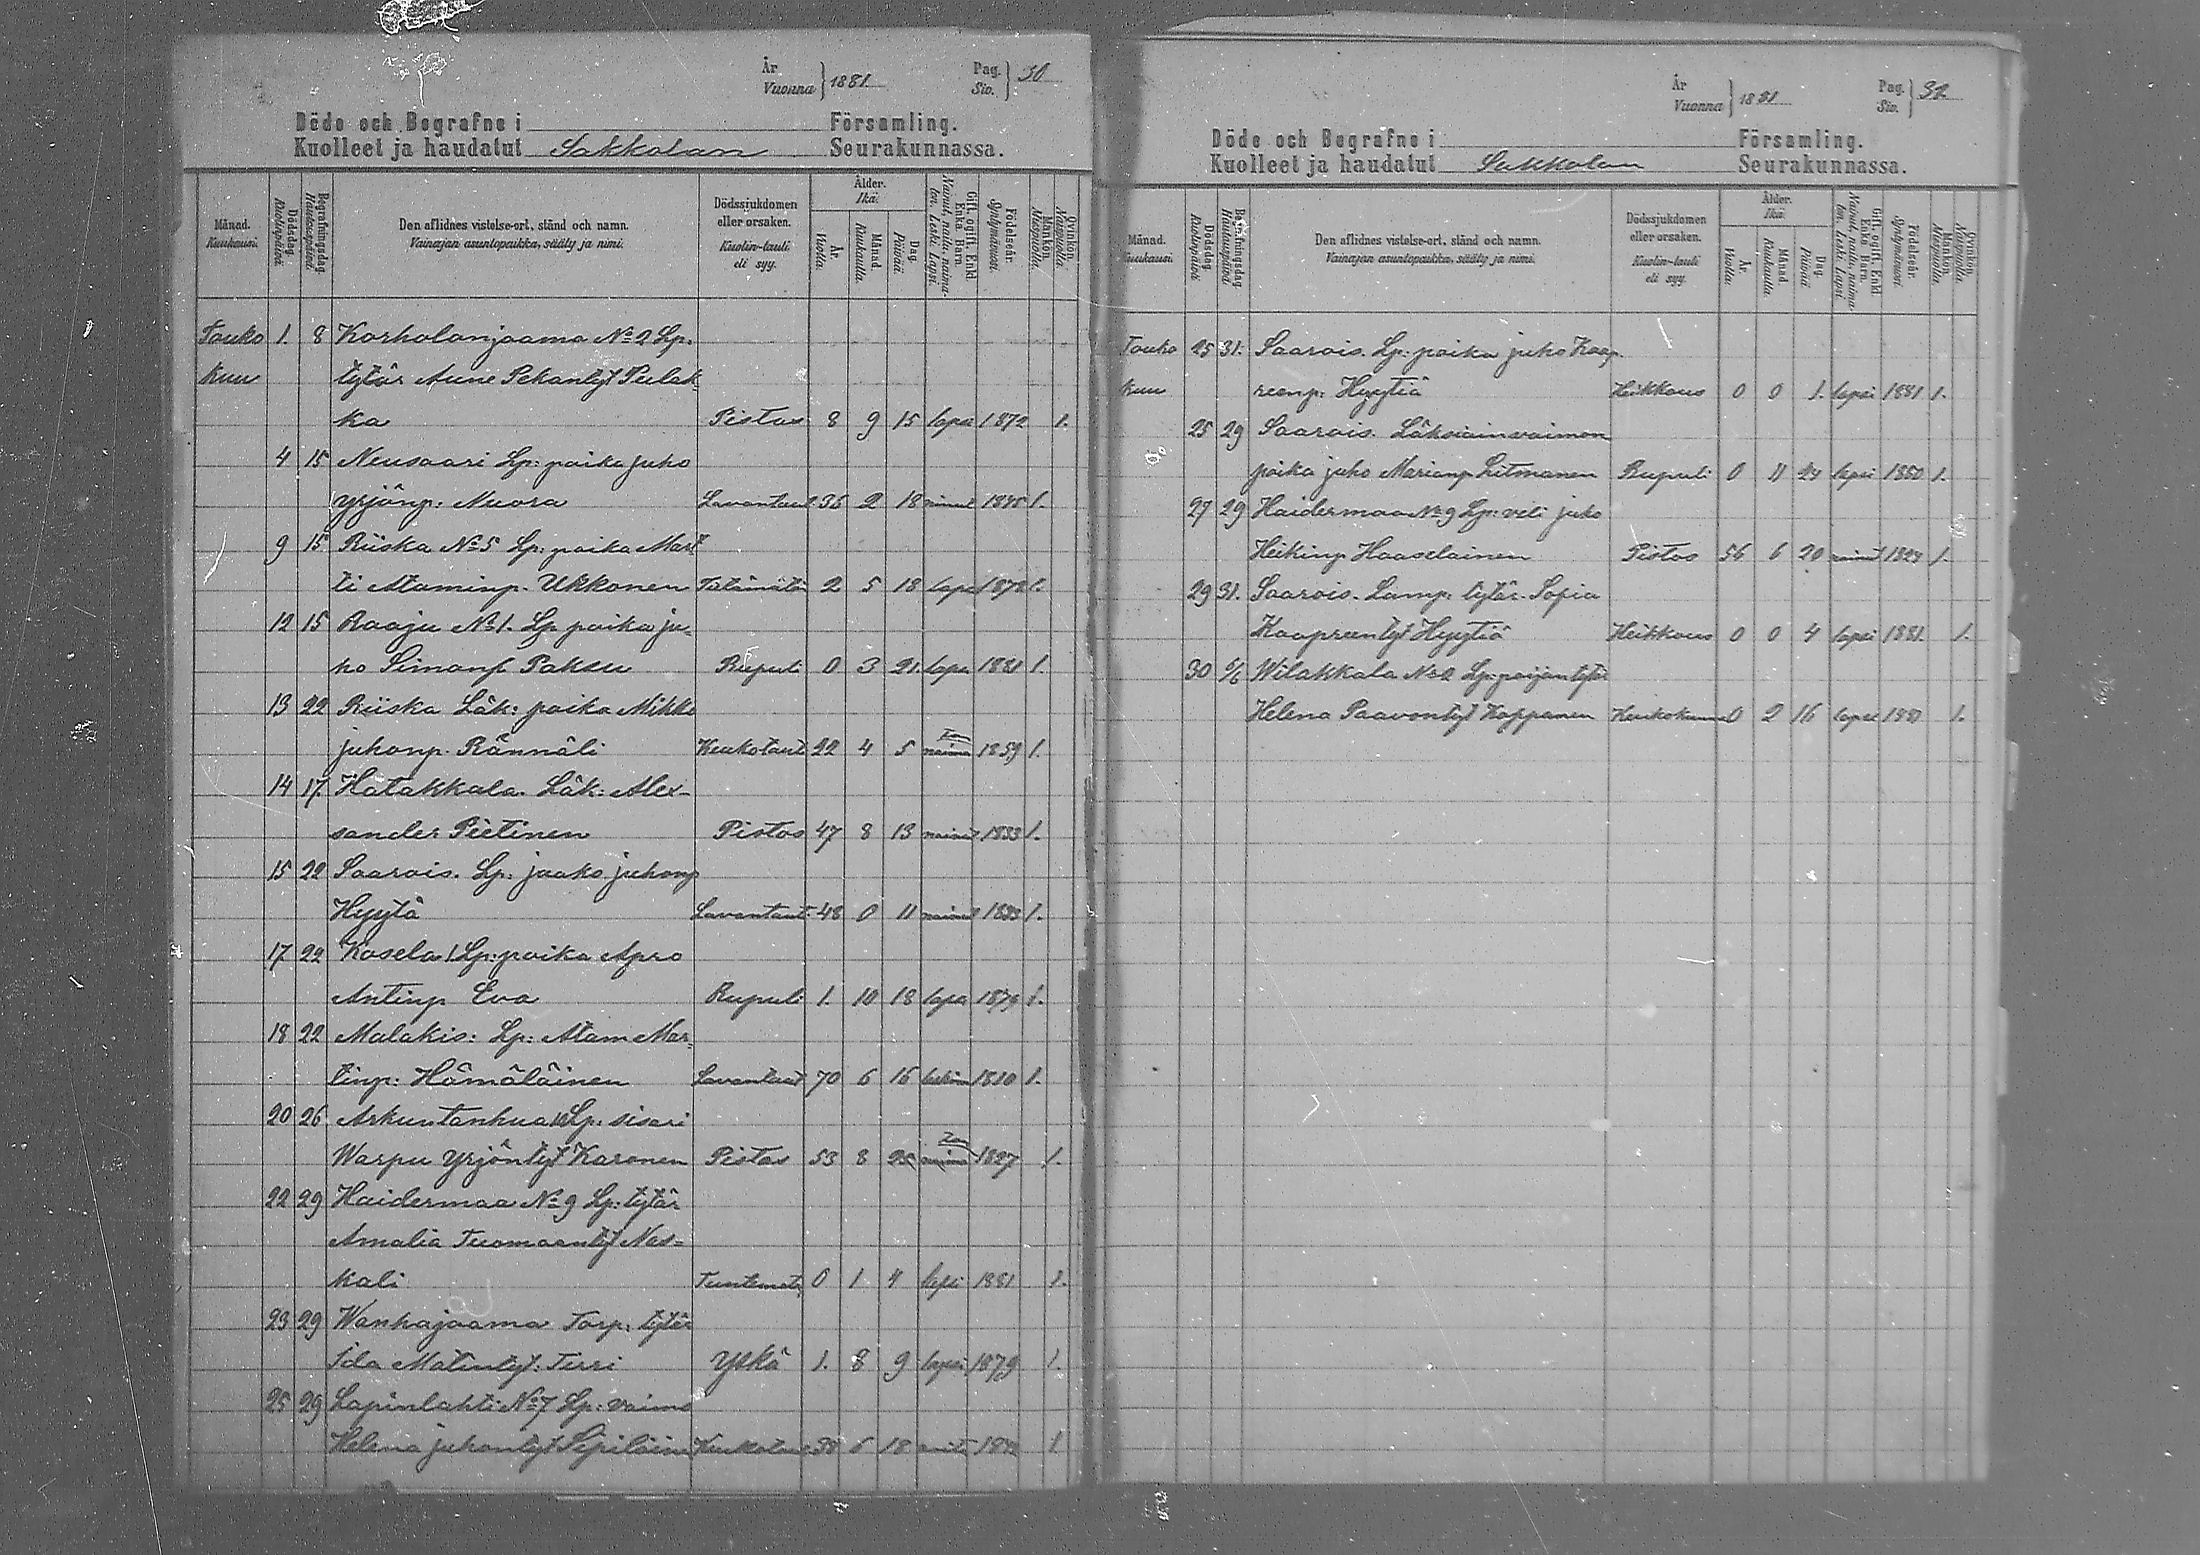 År
Vuonna } 1881.
Pag.
Siv. } 30
Döde och Begrafne i Församling.
Kuolleet ja haudatut Sakkolan Seurakunnassa.
Månad. Kuukausi.
Dödsdag. Kuolinpäivä.
Begrafningsdag. Hautauspäivä.
Den aflidnes vistelse-ort, stånd och namn.
Vainajan asuntopaikka, sääty ja nimi.
Dödssjukdomen eller orsaken.
Kuolin-tauti eli syy.
Ålder. Ikä.
År. Vuotta.
Månad. Kuukautta.
Dag. Päivää.
Gift, ogift, Enkl. Enka. Barn.
Nainut, naitu, naimaton. Leski. Lapsi.
Födelseår. Syntymävuosi.
Mankön. Miespuolia.
Qvinkön. Naispuolia.
Touko 1. 8 Korholanjaama No 2 Lp.
kuu tytär Anne Pekantyt Pulak
ka Pistos 8 9 15 lapsi 1872 1.
4 15 Neusaari Lp: poika juho
yrjönp: Nuora Lavantaut 36 2 18 1845 1.
9 15 Riiska No 5 Lp: poika Mart
ti Ataminp. Ukkonen 2 5 18 lapsi 1878 1.
12 15 Raaju No 1. Lp. poika ju-
ho Simonp Paksu Rupuli 0 3 21. lapsi 1881 1.
13 22 Riiska Läk: poika Mikko
juhonp. Rännäli Keukotaut 22 4 5 1859 1.
14 17 Hatakkala. Läk: Alex-
sander Pietinen Pistos 47 8 13 nainut 1833 1.
15 22 Saarois. Lp: jaako juhonp
Hyytä Lavantaut 48 0 11 nainut 1833 1.
17 22 Kasela 1 Lp: poika Apro
Antinp Eva Rupuli 1. 10 18 lapsi 1879 1.
18 22 Malakis: Lp: Atam Mar-
tinp: Hämäläinen Lavantaut 70 6 16 1810 1.
20 26 Arkuntanhua Lp: sisari
Warpu yrjöntyt Karonen Pistos 53 8 25 1827 1.
22 29 Haidermaa No 9 Lp: tytär
Amalia Tuomaantyt Nas-
kali Tuntemat. 0 1 4 lapsi 1881 1.
23 29 Wanhajaama Torp: tytär
Ida Matintyt: Terri Yskä 1. 8 9 lapsi 1879 1.
25 29 Lapinlahti No 7 Lp: vaimo
Helena juhontyt Keukotaut 38 6 18 1
År
Vuonna } 1881
Pag.
Siv. } 32
Döde och Begrafne i Församling.
Kuolleet ja haudatut Sakkolan Seurakunnassa.
Månad. Kuukausi.
Dödsdag. Kuolinpäivä.
Begrafningsdag. Hautauspäivä.
Den aflidnes vistelse-ort, stånd och namn.
Vainajan asuntopaikka, sääty ja nimi.
Dödssjukdomen eller orsaken.
Kuolin-tauti eli syy.
Ålder. Ikä.
År. Vuotta.
Månad. Kuukautta.
Dag. Päivää.
Gift, ogift, Enkl. Enka. Barn.
Nainut, naitu, naimaton. Leski. Lapsi.
Födelseår. Syntymävuosi.
Mankön. Miespuolia.
Qvinkön. Naispuolia.
Touko 25 31. Saarois. Lp: poika juho Kaap
kuu reenp: Hyytiä Heikkous 0 0 1. lapsi 1881 1.
25 29 Saarois. Läksiäinvaimon
poika juho Marianp Litmanen Rupuli 0 11 24 lapsi 1880 1.
27 29 Haidermaa No 9 Lp: veli juho
Heikinp Haaselainen Pistos 56 6 20 1824 1.
29 31. Saarois. Lamp. tytär. Sofia
Kaapreentyt Hyytiä Heikkous 0 0 4 lapsi 1881. 1.
30 5/6 Wilakkala No 2 Lp: poijan tytär
Helena Paavontyt Koppanen 0 2 16 lapsi 1881 1.